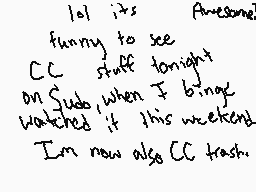 lol its Awesome!
funny to see
CC stuff tonight
on Sudo, when I binge
watched it this weekend
Im now also CC trash.